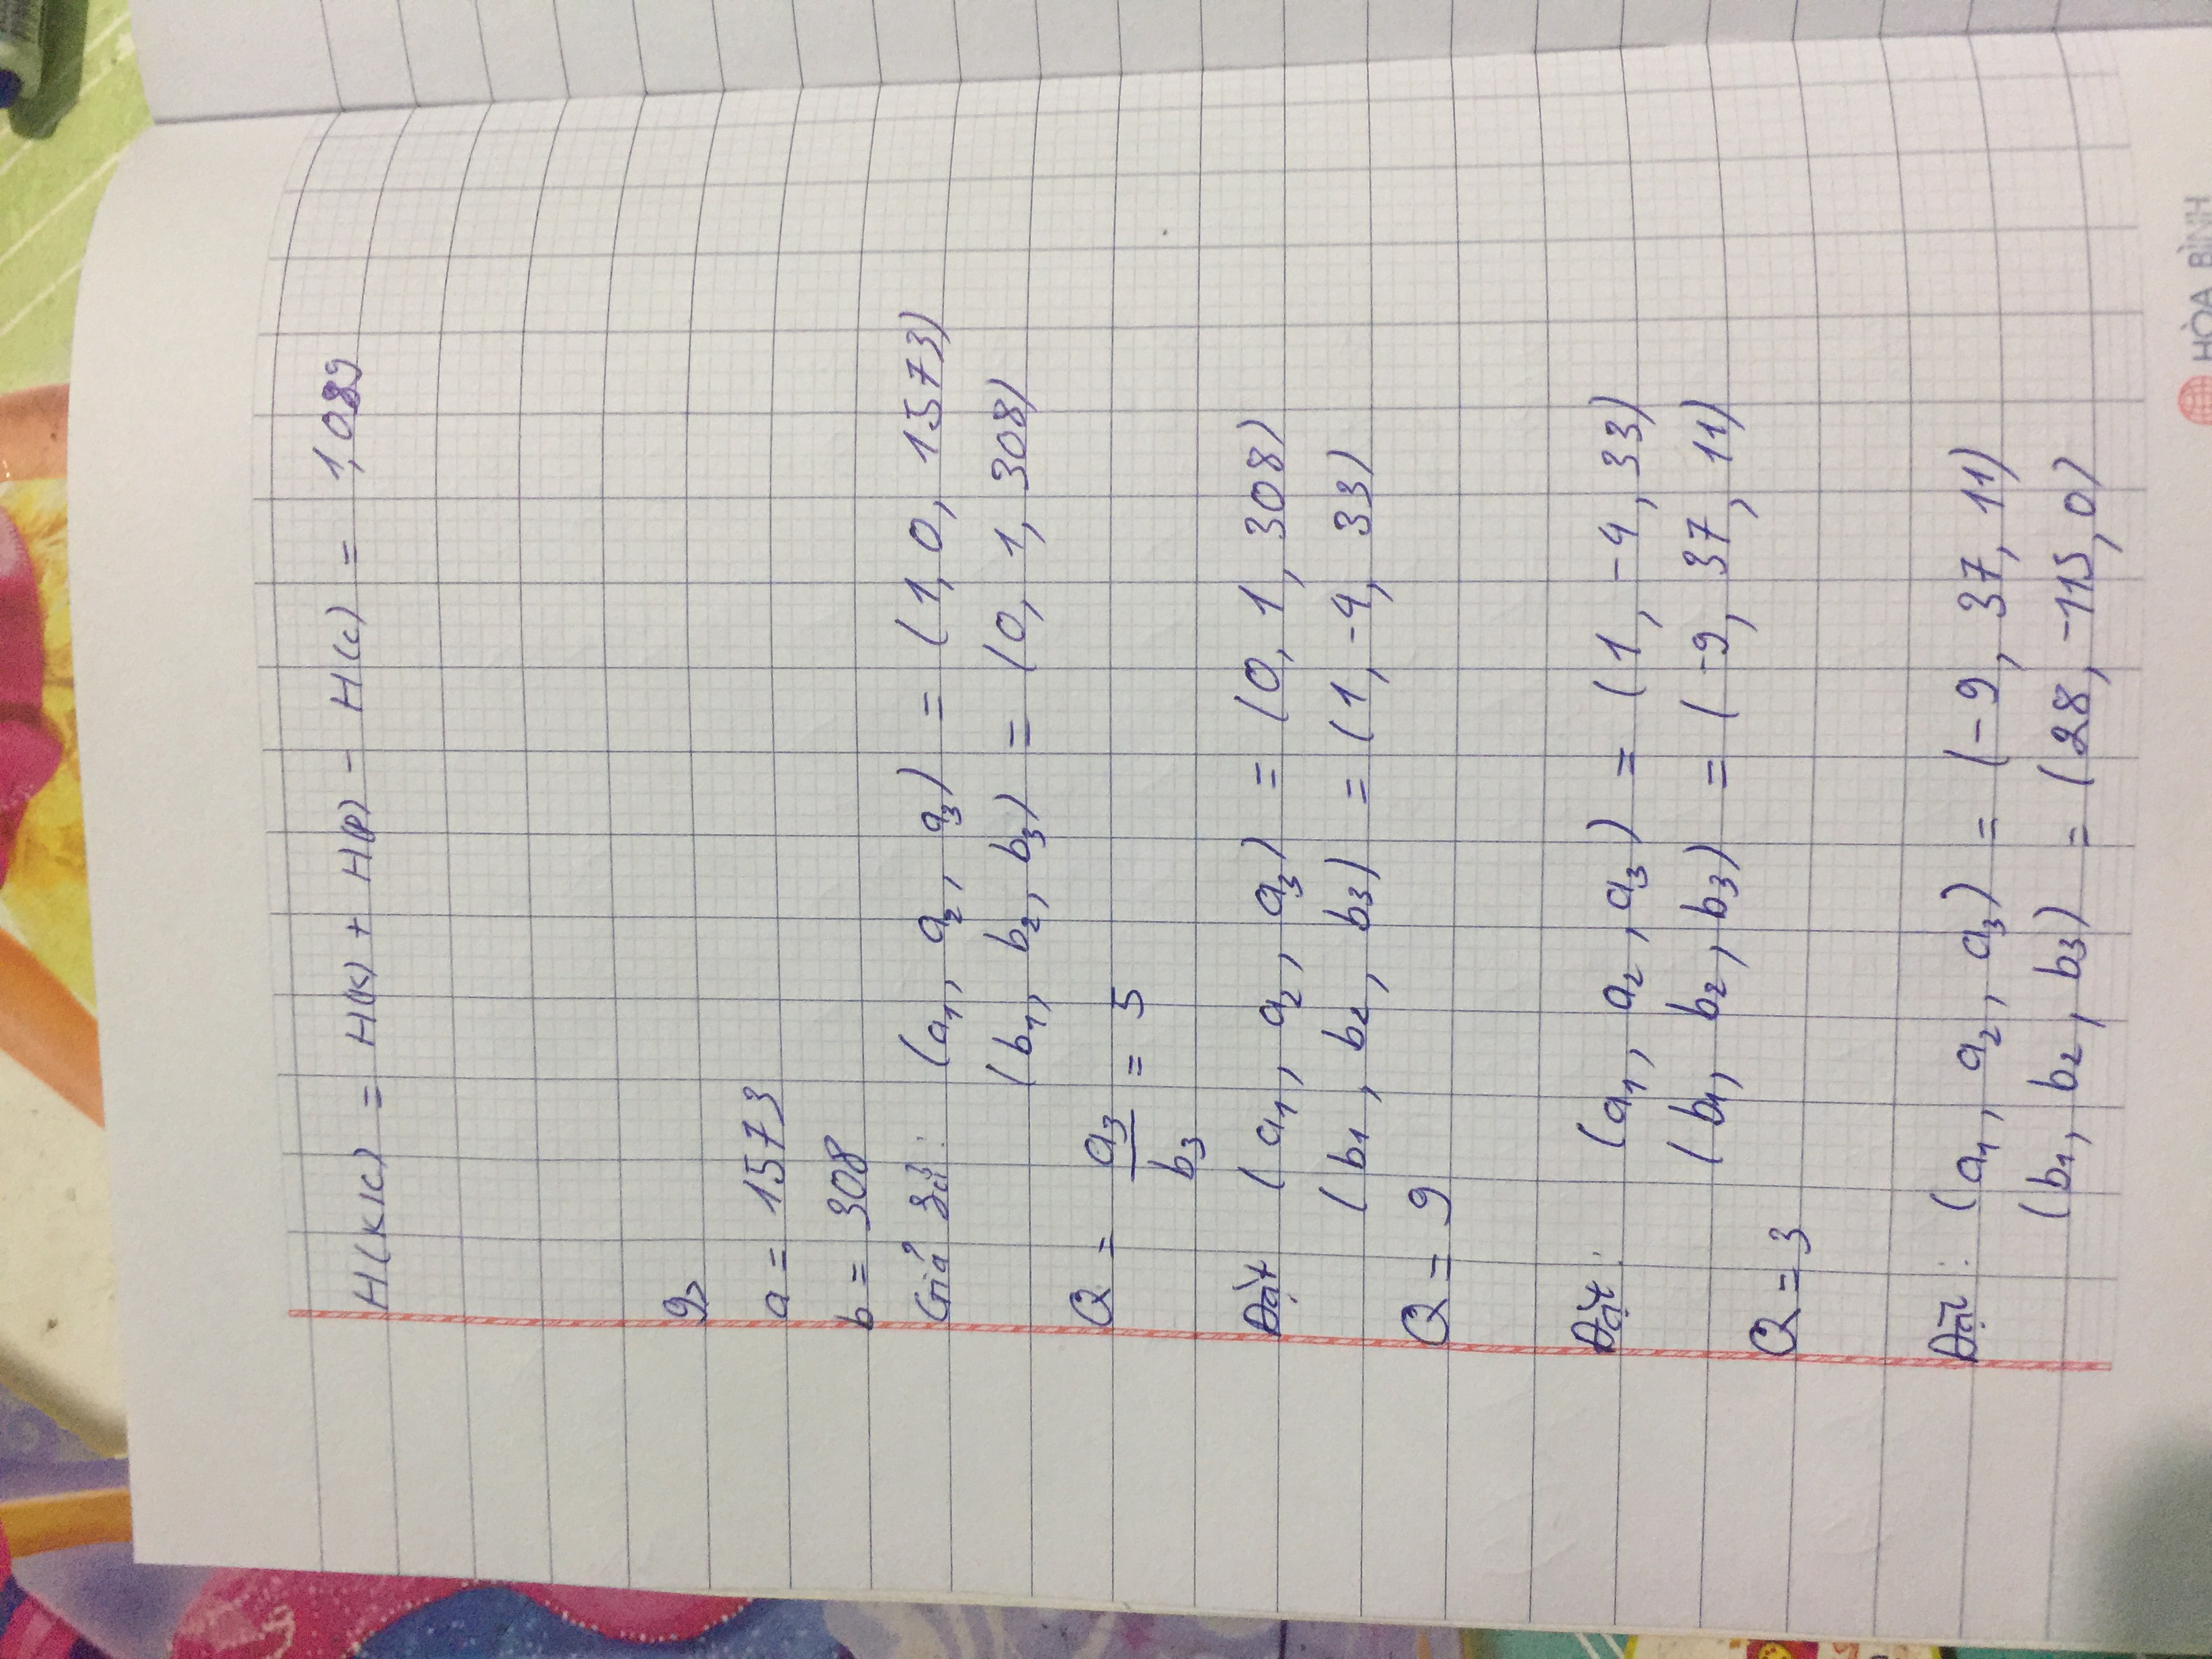 H(K|C) = H(K) + H(P) - H(C) = 1,089
9>
a = 1573
b = 308
Giả sử : (a1, a2, a3) = (1, 0, 1573)
(b1, b2, b3) = (0, 1, 308)
Q = a3/b3 = 5
Đặt (a1, a2, a3) = (0, 1, 308)
(b1, b2, b3) = (1, -4, 33)
Q = 9
Đặt : (a1, a2, a3) = (1, -4, 33)
(b1, b2, b3) = (-9, 37, 11)
Q = 3
Đặt : (a1, a2, a3) = (-9, 37, 11)
(b1, b2, b3) = (28, -115, 0)
HÒA BÌNH